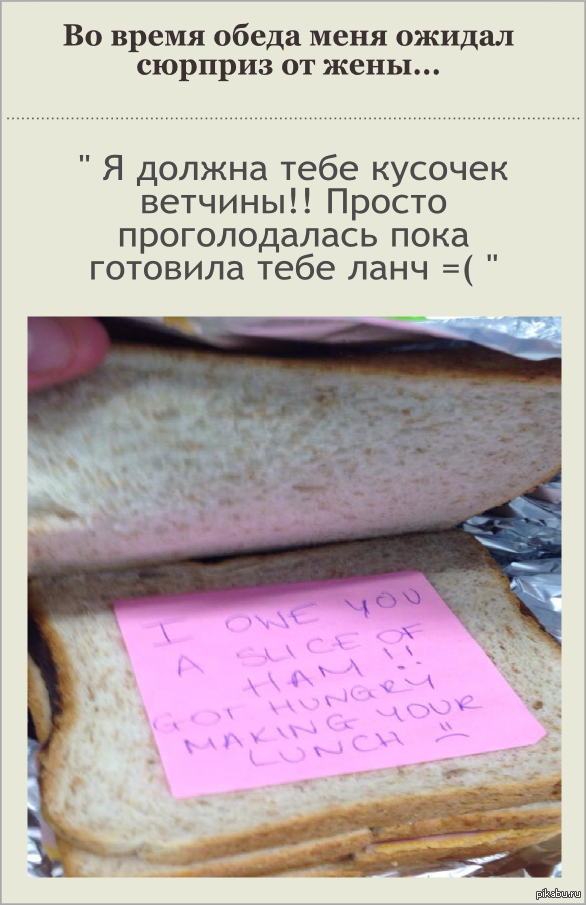 Во время обеда меня ожидал
сюрприз от жены...
" Я должна тебе кусочек
ветчины!! Просто
проголодалась пока
готовила тебе ланч =( "
I OWE YOU
A SLICE OF
HAM !!
GOT HUNGRY
MAKING YOUR
LUNCH :(
pikabu.ru